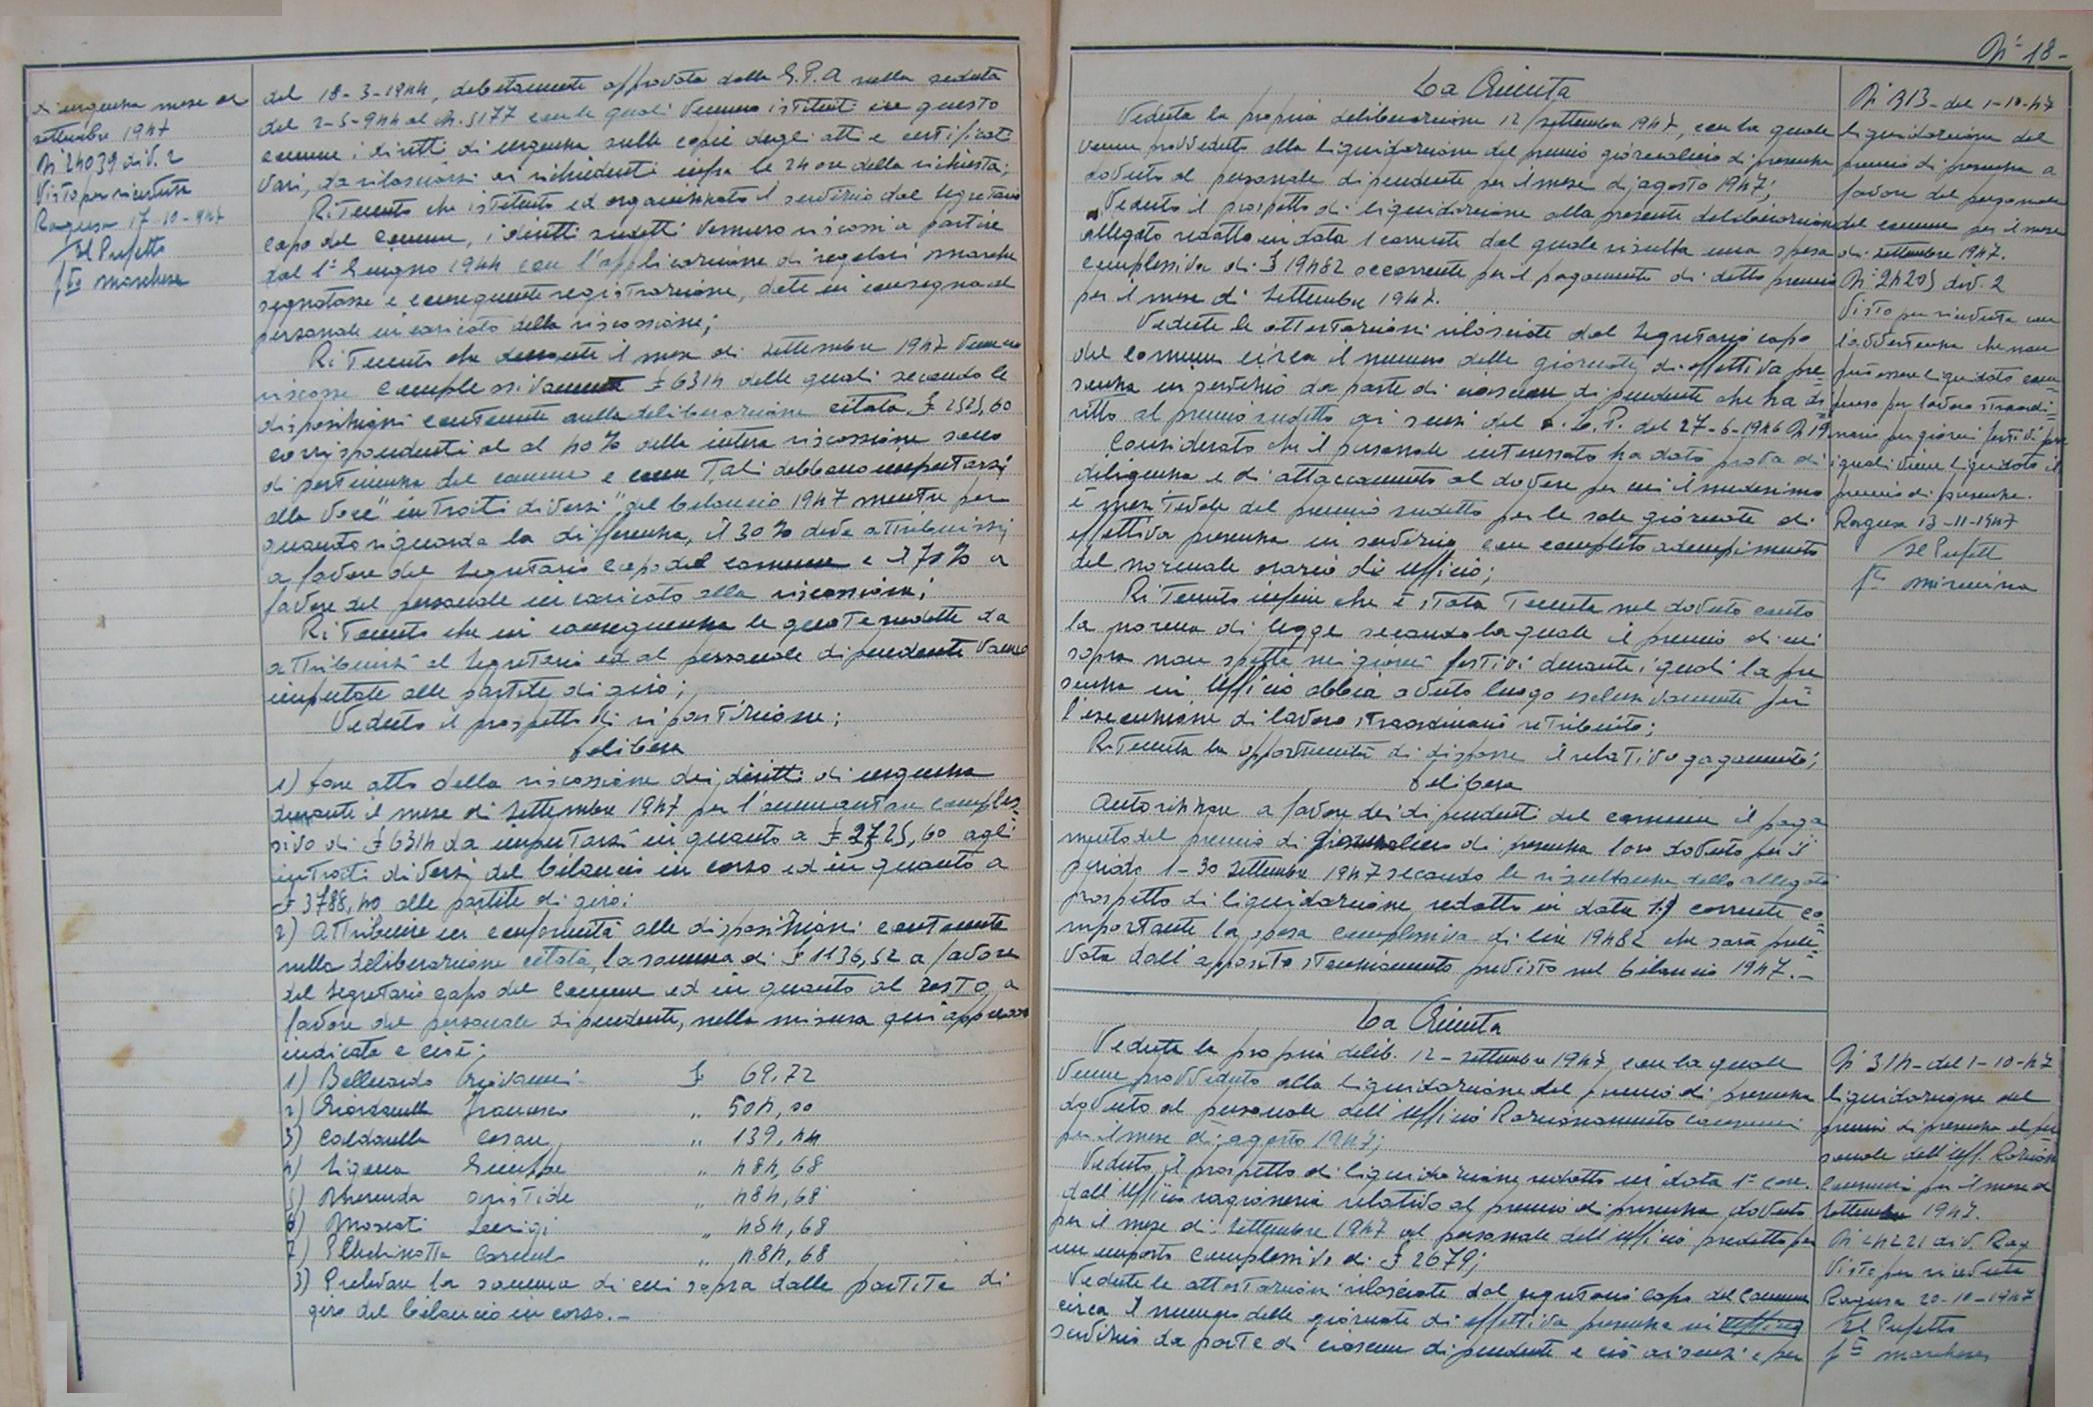 di urgenza mese di
settembre 1947
N° 24039 div. 2
Visto per ricevuta
Ragusa 17-10-947
Il Prefetto
f/to Marchese
del 18-3-1944, debitamente approvata dalla G.P.A nella seduta
del 2-5-944 al N. 5177 con la quale vennero istituiti in questo
comune i diritti di urgenza sulle copie degli atti e certificati
vari, da rilasciarsi ai richiedenti infra le 24 ore della richiesta;
Ritenuto che istituito ed organizzato il servizio dal segretario
capo del Comune, i diritti sudetti vennero riscossi a partire
dal 1° Giugno 1944 con l'applicazione di regolari marche
segnatasse e conseguente registrazione, date in consegna al
personale incaricato della riscossione;
Ritenuto che durante il mese di Settembre 1947 vennero
riscosse complessivamente £ 6314 delle quali secondo le
disposizioni contenute nella deliberazione citata, £ 2525,60
corrispondenti al al 40% della intera riscossione sono
di pertinenza del comune e come tali debbono imputarsi
alla voce "introiti diversi" del bilancio 1947 mentre per
quanto riguarda la differenza, il 30% deve attribuirsi
a favore del Segretario capo del comune e il 70% a
favore del personale incaricato alla riscossione;
Ritenuto che in conseguenza le quote predette da
attribuirsi al Segretario ed al personale dipendente vanno
imputate alle partite di giro;
Veduto il prospetto di ripartizione;
Delibera
1) Fare atto della riscossione dei diritti di urgenza
durante il mese di Settembre 1947 per l'ammontare comples=
sivo di £ 6314 da imputarsi in quanto a £ 2525,60 agli
introiti diversi del bilancio in corso ed in quanto a
£ 3788,40 alle partite di giro;
2) Attribuire in conformità alle disposizioni contenute
nella deliberazione citata, la somma di £ 1136,52 a favore
del Segretario capo del Comune ed in quanto al resto a
favore del personale dipendente, nella misura qui appresso
indicata e cioè;
1) Belluardo Giovanni £ 69,72
2) Giordanella Francesco " 504,00
3) Caldarella Cesare " 139,44
4) Ligama Giuseppe " 484,68
5) Merenda Aristide " 484,68
6) Moscati Luigi " 484,68
7) Carmelo " 484,68
3) Prelevare la somma di cui sopra dalle partite di
giro del bilancio in corso.-
N° 18-
La Giunta
Veduta la propria deliberazione 12/settembre 1947, con la quale
venne provveduto alla liquidazione del premio giornaliero di presenza
dovuto al personale dipendente per il mese di agosto 1947;
Veduto il prospetto di liquidazione alla presente deliberazione
allegato redatto in data 1 corrente dal quale risulta una spesa
complessiva di £ 19482 occorrente per il pagamento di detto premio
per il mese di Settembre 1947.
Vedute le attestazioni rilasciate dal Segretario capo
del comune circa il numero delle giornate di effettiva pre
senza in servizio da parte di ciascun dipendente che ha di
ritto al premio sudetto ai sensi del D.L.P. del 27-6-1946 N 19
Considerato che il personale interessato ha dato prova di
diligenza e di attaccamento al dovere per cui il medesimo
è meritevole del premio sudetto per le sole giornate di
effettiva presenza in servizio con completo adempimento
del normale orario di ufficio;
Ritenuto infine che è stata tenuta nel dovuto conto
la norma di legge secondo la quale il premio di cui
sopra non spetta nei giorni festivi durante i quali la pre
senza in Ufficio abbia avuto luogo esclusivamente per
l'esecuzione di lavoro straordinario retribuito;
Ritenuta la opportunità di disporre il relativo pagamento;
Delibera
Autorizzare a favore dei dipendenti del comune il paga
mento del premio di giornaliero di presenza loro dovuto per il
periodo 1-30 Settembre 1947 secondo le risultanze dello allegato
prospetto di liquidazione redatto in data 1° corrente co=
mportante la spesa complessiva di lire 19482 che sarà prele=
vata dall'apposito stanziamento previsto nel bilancio 1947.-
N 313- del 1-10-47
liquidazione del
premio di presenza a
favore del personale
del comune per il mese
di Settembre 1947.
N° 24205 div. 2
Visto per ricevuta con
l'avvertenza che non
può essere liquidato com
penso per lavoro straordi=
nario per giorni festivi per
i quali viene liquidato il
premio di presenza.
Ragusa 13-11-1947
Il Prefetto
f/to
La Giunta
Veduta la propria delib. 12-settembre 1947, con la quale
venne provveduto alla liquidazione del premio di presenza
dovuto al personale dell'Ufficio Razionamento consumi
per il mese di agosto 1947;
Veduto il prospetto di liquidazione redatto in data 1° corr.
dall'Ufficio ragioneria relativo al premio di presenza dovuto
per il mese di Settembre 1947 al personale dell'ufficio predetto per
un importo complessivo di £ 2679;
Vedute le attestazioni rilasciate dal segretario capo del Comune
circa il numero delle giornate di effettiva presenza in Ufficio
servizio da parte di ciascun dipendente e ciò ai sensi e per
N 314- del 1-10-47
liquidazione del
premio di presenza al per
sonale dell'Uff. Razion.
Consumi per il mese di
Settembre 1947.
N° 24221 div. Rag
Visto per ricevuta
Ragusa 20-10-1947
Il Prefetto
f/to Marchese